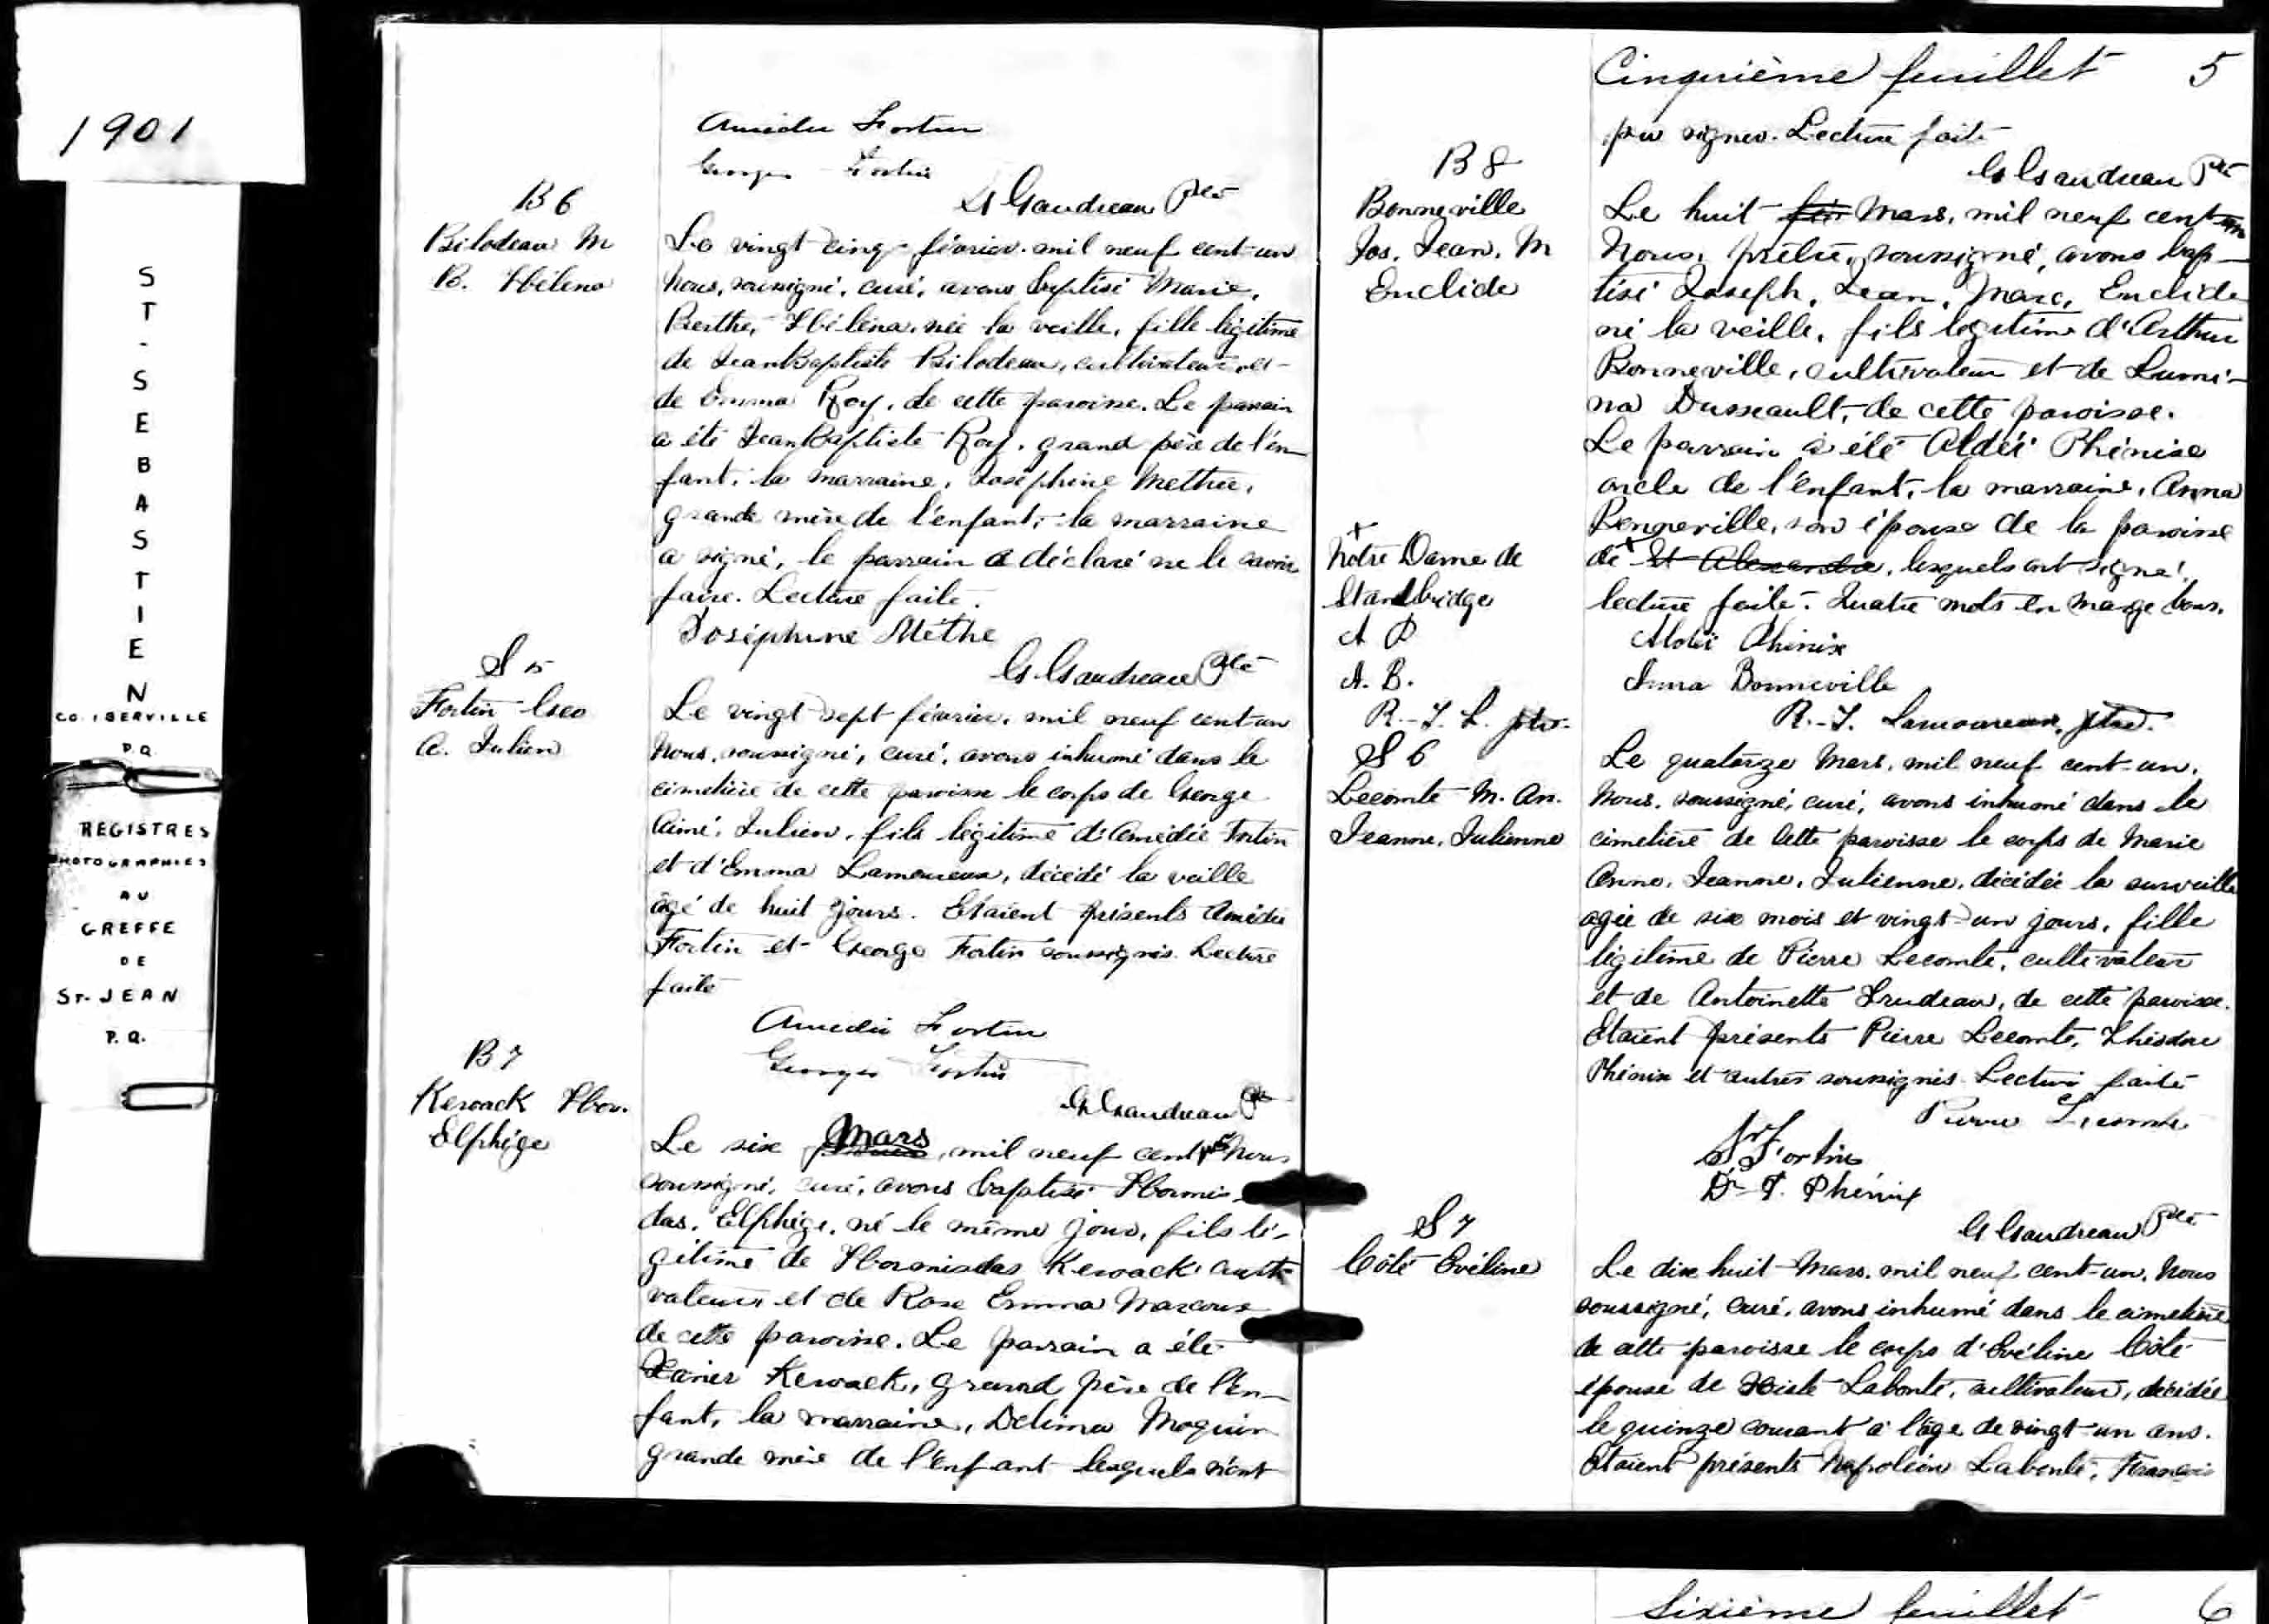 1901
ST-SEBASTIEN
CO. IBERVILLE
P.Q.
REGISTRES
PHOTOGRAPHIES
AU
GREFFE
DE
ST-JEAN
P.Q.
Amédée Fortin
Georges Fortin
G Gaudreau Ptre
B 6
Bilodeau M
B. Hélena
Le vingt cinq février mil neuf cent-un
Nous, soussigné, curé, avons baptisé Marie,
Berthe, Hélèna, née la veille, fille légitime
de Jean Baptiste Bilodeau, cultivateur, et
de Emma Roy, de cette paroisse. Le parrain
a été Jean Baptiste Roy, grand père de l'en-
fant, la marraine, Joséphine Methée,
grande mère de l'enfant, la marraine
a signé, le parrain a déclaré ne le savoir
faire. Lecture faite.
Joséphine Méthe
G. Gaudreau Ptre
S 5
Fortin Geo
A. Julien
Le vingt sept février, mil neuf cent-un
Nous, soussigné, curé, avons inhumé dans le
cimetière de cette paroisse le corps de George
Aimé, Julien, fils légitime d'Amédée Fortin
et d'Emma Lamoureux, décédé la veille
âgé de huit jours. Etaient présents Amédée
Fortin et George Fortin soussignés. Lecture
faite
Amédée Fortin
Georges Fortin
G Gaudreau Ptre
B 7
Keroack Hor.
Elphège
Le six Mars, mil neuf cent un Nous
soussigné, curé, avons baptisé Hormis-
das, Elphège, né le même jour, fils lé-
gitime de Hormisdas Keroack culti-
vateur et de Rose Emma Marcoux
de cette paroisse. Le parrain a été
Xavier Keroack, grand père de l'en-
fant, la marraine, Delima Moquin
grande mère de l'enfant lesquels n'ont
Cinquième feuillet 5
pu signer. Lecture faite
G Gaudreau Ptre
B 8
Bonneville
Jos. Jean. M
Euclide
Le huit Mars, mil neuf cent un
Nous, prêtre, soussigné, avons bap-
tisé Joseph, Jean, Marc, Euclide
né la veille, fils légitime d'Arthur
Bonneville, cultivateur et de Lumi-
na Dussault, de cette paroisse.
Le parrain a été Aldéi Phénise
oncle de l'enfant, la marraine, Anna
Bonneville, son épouse de la paroisse
de + St Alexandre, lesquels ont signé,
lecture faite. Quatre mots en marge bons.
+
Notre Dame de
Standbridge
A P
A. B.
R.-J. L. ptr.
Aldéï Phénix
Anna Bonneville
R.-J. Lamoureux, ptre.
S 6
Lecomte M. An.
Jeanne, Julienne
Le quatorze Mars, mil neuf cent-un,
Nous, soussigné, curé, avons inhumé dans le
cimetière de cette paroisse le corps de Marie
Anne, Jeanne, Julienne, décédée la surveille
agée de six mois et vingt-un jours, fille
légitime de Pierre Lecomte, cultivateur
et de Antoinette Trudeau, de cette paroisse.
Etaient présents Pierre Lecomte, Théodore
Phénix et autres soussignés. Lecture faite
Pierre Lecomte
J Fortin
Dr T. Phénix
G Gaudreau Ptre
S 7
Côté Evéline
Le dix huit Mars, mil neuf cent-un, Nous
soussigné, curé, avons inhumé dans le cimetière
de cette paroisse le corps d'Evéline Côté
épouse de Xiste Labonté, cultivateur, décédée
le quinze courant à l'âge de vingt-un ans.
Etaient présents Napoléon Labonté, François
Sixième feuillet 6